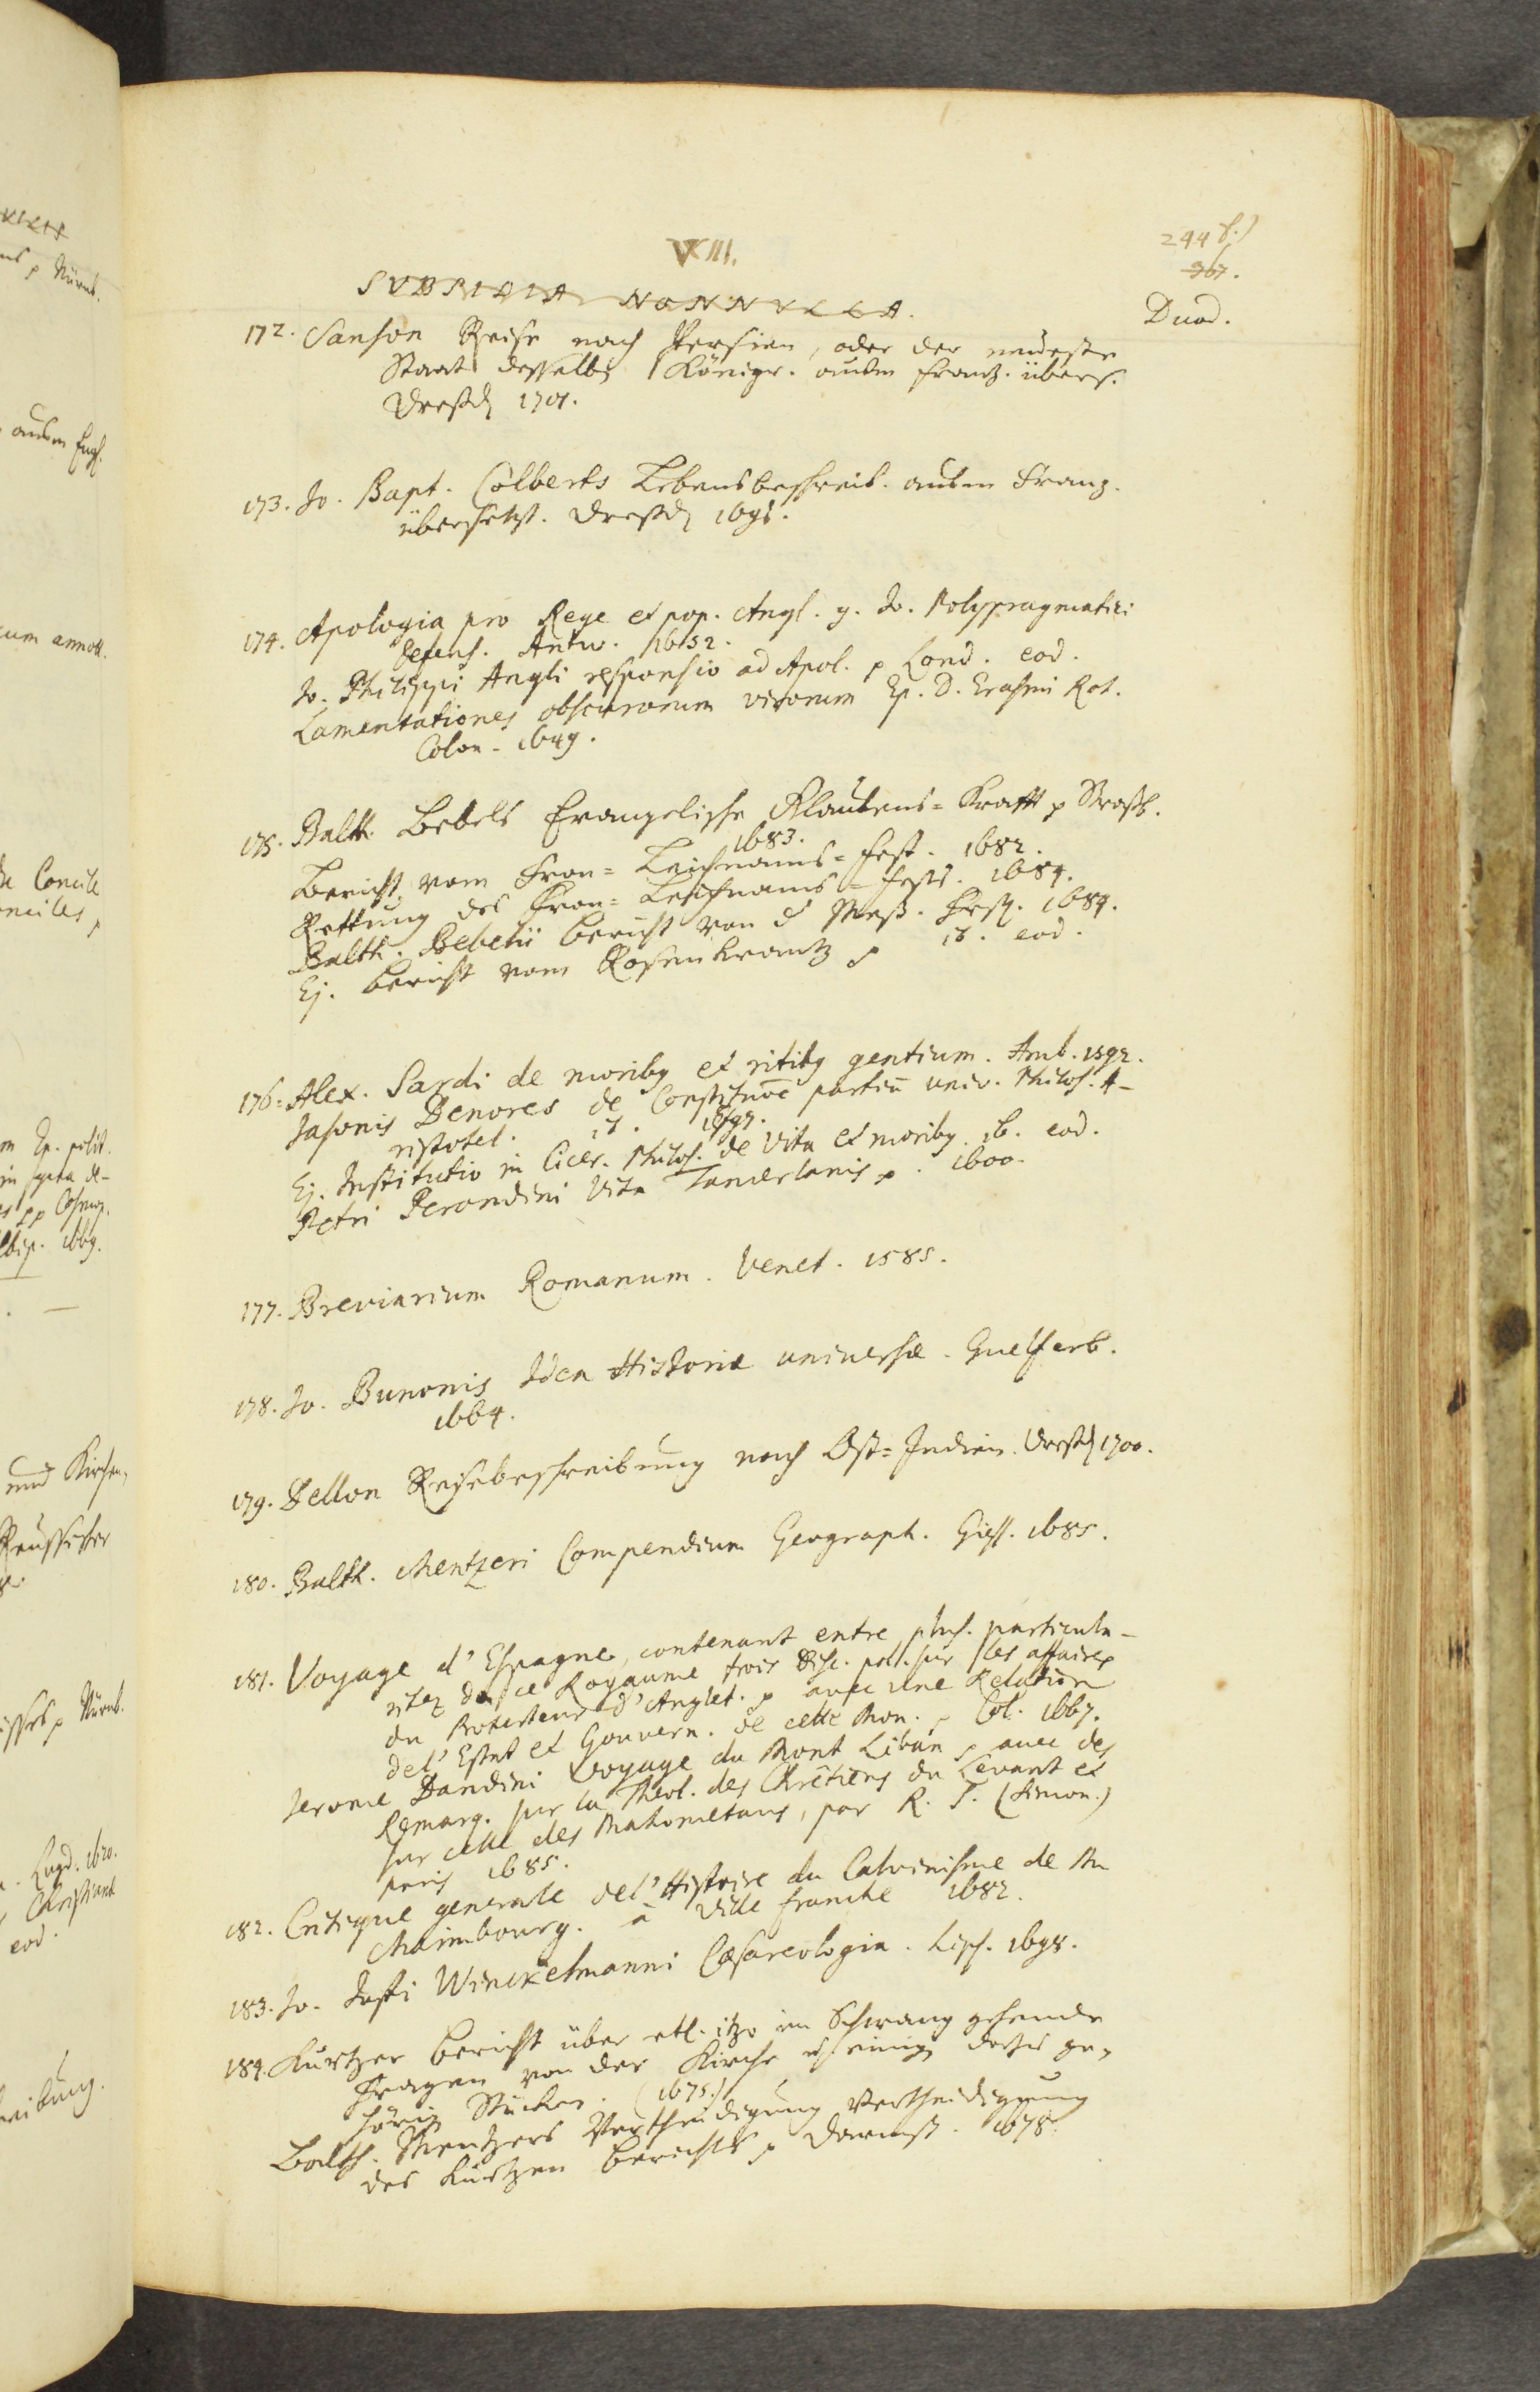 VIII.
244 b.)
367.
SUBSIDIA NONNULLA.
Duod.
172. Sanson Reise nach Persien, oder der neueste
Staat desselben Königr. außm Frantz. übers.
Dreßden 1701.
173. Jo. Bapt. Colberts Lebensbeschreib. außm Franz.
übersetzt. Dreßden
174. Apologia pro Rege et pop. Angl. g. Jo. Polypragmatici
defens. Antw. 1652.
Jo. Philippi Angli responsio ad Apol. p Lond. eod.
Lamentationes obscurorum virorum Ep. D. Erasmi Rot.
Colon. 1649.
175. Balth. Bebels Evangelische Glaubens=Krafft p Straßb.
1683.
Bericht vom Fron=Leichnams=Fest. 1682.
Rettung des Fron=Leichnams=Fests. 1684.
Balth. Bebelii Bericht von d Meß. 1684.
Ej. Bericht vom Rosenkrantz p ib. eod.
176. Alex. Sardi de moribg et ritibg gentium. Amb. 1592.
Jasonis Denores de Constituōe partiū univ. Philos. A-
ristotel. ib. 1592.
Ej. Institutio in Cicer. Philos. de Vita et moribg. ib. eod.
Petri Perondini Vita Tamerlanis p. 1600.
177. Breviarium Romanum. Venet. 1585.
178. Jo. Bunonis Idea Historiæ universæ. Guelferb.
1664.
179. Dellon Reisebeschreibung nach Ost=Indien. Dreßd 1700.
180. Balth. Mentzeri Compendium Geograph. Giess. 1685.
181. Voyage d'Espagne, contenant entre plus. particula-
ritez de ce Royaume trois Disc. poli. sur les affaires
du Protecteur d'Anglet. p avec une Relation
de l'Estat et Gouvern. de cette Mon. p Col. 1667.
Jerome Dandini Voyage du Mont Liban p avec des
Remarq. sur la Theol. des Chrêtiens du Levant et
sur celle des Mahometans, par R. S. (Simon.)
Paris 1685.
182. Critique generale de l'Histoire du Calvinisme de Mr
Maimbourg. à Ville franche 1682.
183. Jo. Justi Winckelmanni Cæsareologia. Lips. 1698.
184. Kurtzer Bericht über etl. itzo im Schwang gehende
Fragen von der Kirche u einig darzu ge-
hörig Stücken. (1675.)
Balth. Mentzers Vertheidigung Vertheidigung
des Kurtzen Berichts p Darmst. 1678.